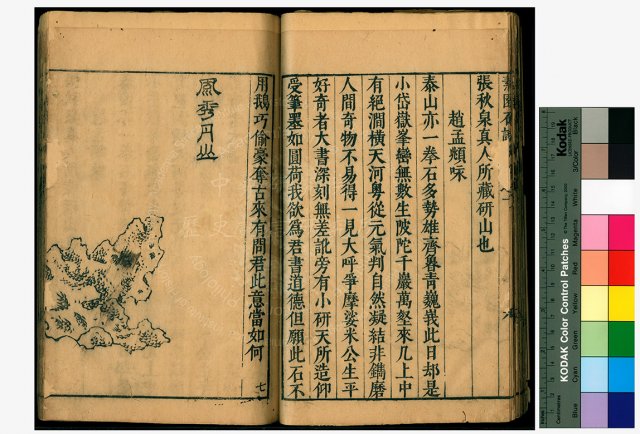 張秋泉真人所藏研山也
趙孟頫咏
泰山亦一拳石多勢雄齊魯青巍峩此日却是
小岱嶽峯巒無數生陂陀千巖萬壑來几上中
有絕澗橫天河粤從元氣判自然凝結非鐫磨
人間奇物不易得一見大呼爭摩娑米公生平
好奇者大書深刻無差訛旁有小研天所造仰
受筆墨如圓荷我欲爲君書道德但願此石不
用鵝巧偷豪奪古來有問君此意當如何
七
Kodak
KODAK Color Control Patches
Blue
Cyan
Green
Yellow
Red
Magenta
White
3/Color
Black
Centimetres